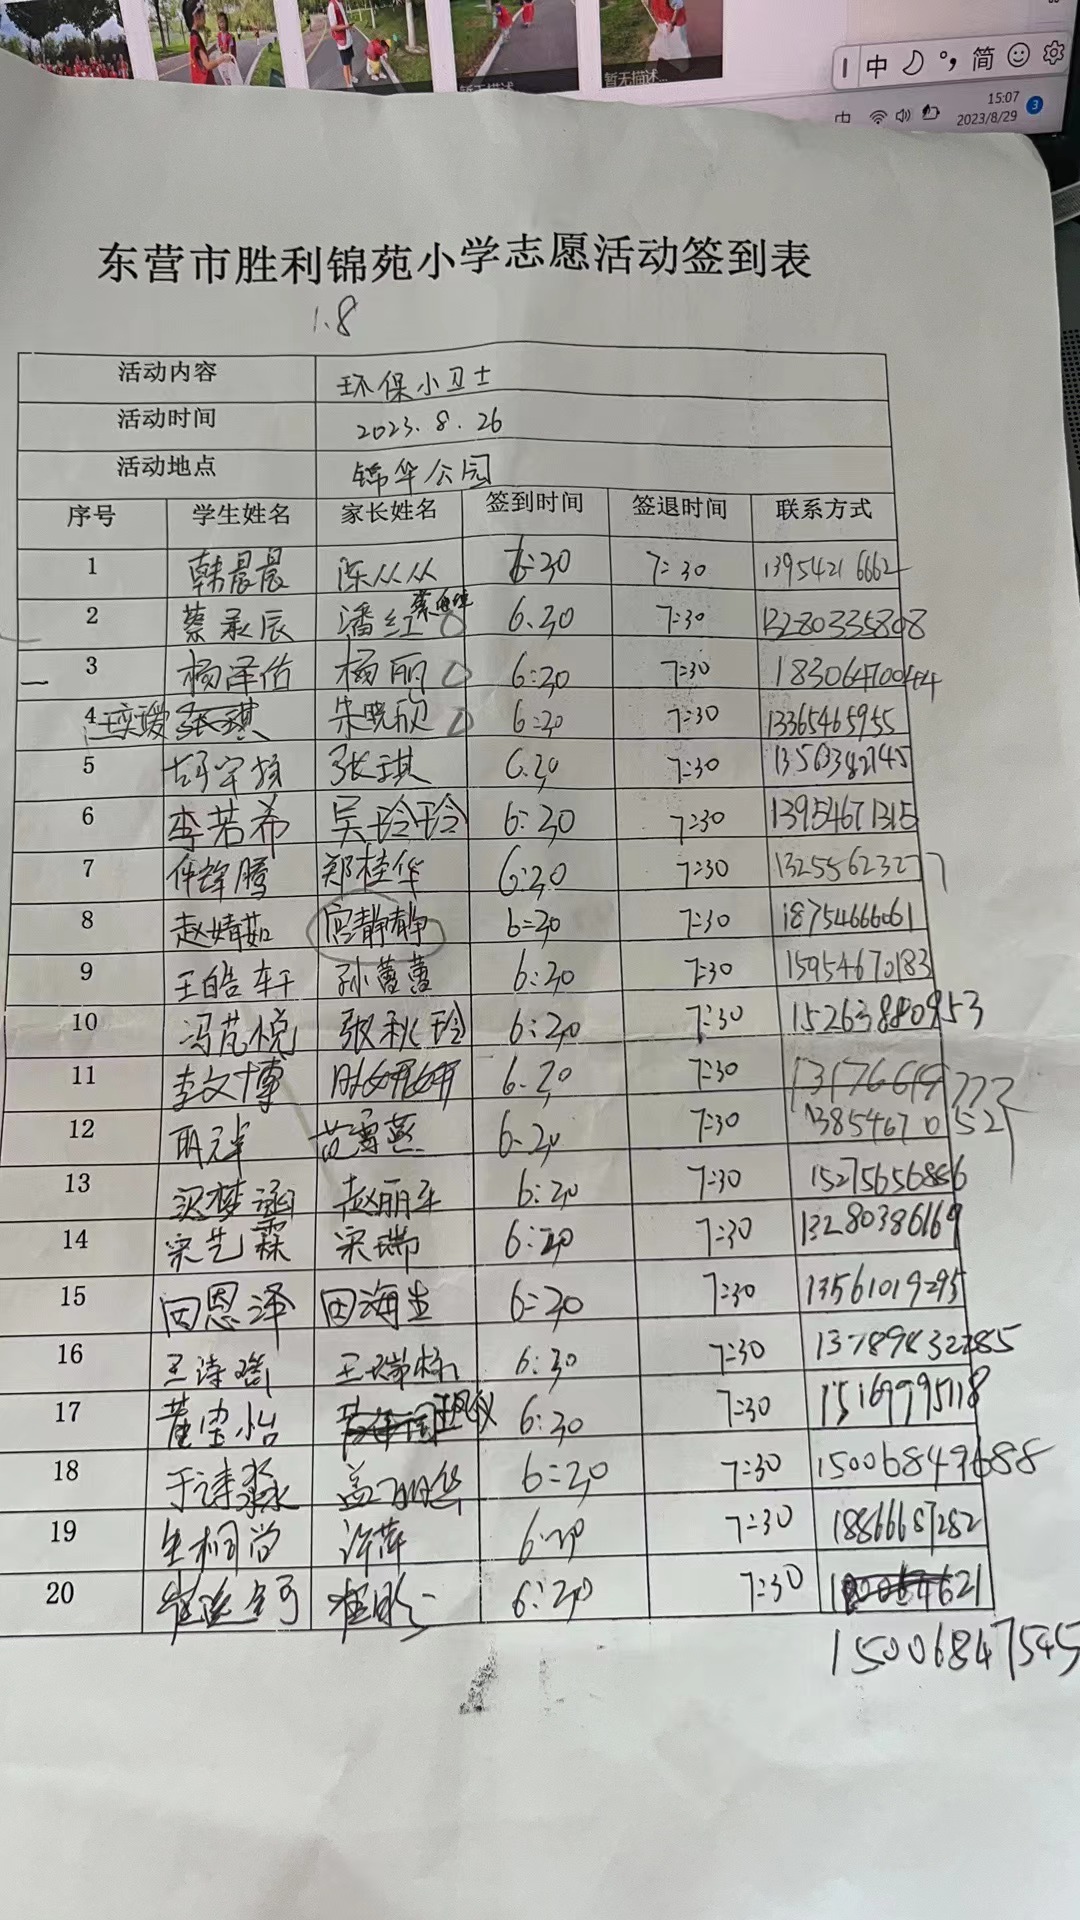 暂无描述...
暂无描述...
中 简
中
15:07
2023/8/29
3
东营市胜利锦苑小学志愿活动签到表
1.8
活动内容 环保小卫士
活动时间 2023.8.26
活动地点 锦华公园
序号 学生姓名 家长姓名 签到时间 签退时间 联系方式
1 韩晨晨 陈从从 6:30 7:30 13954216662
2 蔡承辰 潘红 6.30 7:30 13280335808
3 杨泽佑 杨丽 6:30 7:30 18306470044
4 张琪 朱晓欣 6:30 7:30 13365465955
5 张琪 6.30 7:30 13563382145
6 李若希 吴玲玲 6:30 7:30 13954671315
7 仵锋腾 郑桂华 6:30 7:30 13255623277
8 赵婧茹 宫静静 6:30 7:30 18754666061
9 王皓轩 孙蕾蕾 6:30 7:30 15954670183
10 冯芃悦 张秋玲 6:30 7:30 15263880953
11 李文博 6.30 7:30 13176619777
12 黄雪燕 6.30 7:30 13854670527
13 梦涵 赵丽平 6:30 7:30 15275656886
14 宋艺霖 宋瑞 6:30 7:30 13280386169
15 田恩泽 田海生 6:30 7:30 13561019295
16 王诗瑶 王瑞栋 6:30 7:30 13789832285
17 董宝怡 王凤仪 6:30 7:30 15169995118
18 于诗淼 盖丽华 6:30 7:30 15006849688
19 生桐尚 许萍 6:30 7:30 18866687282
20 崔 崔 6:30 7:30
15006847545